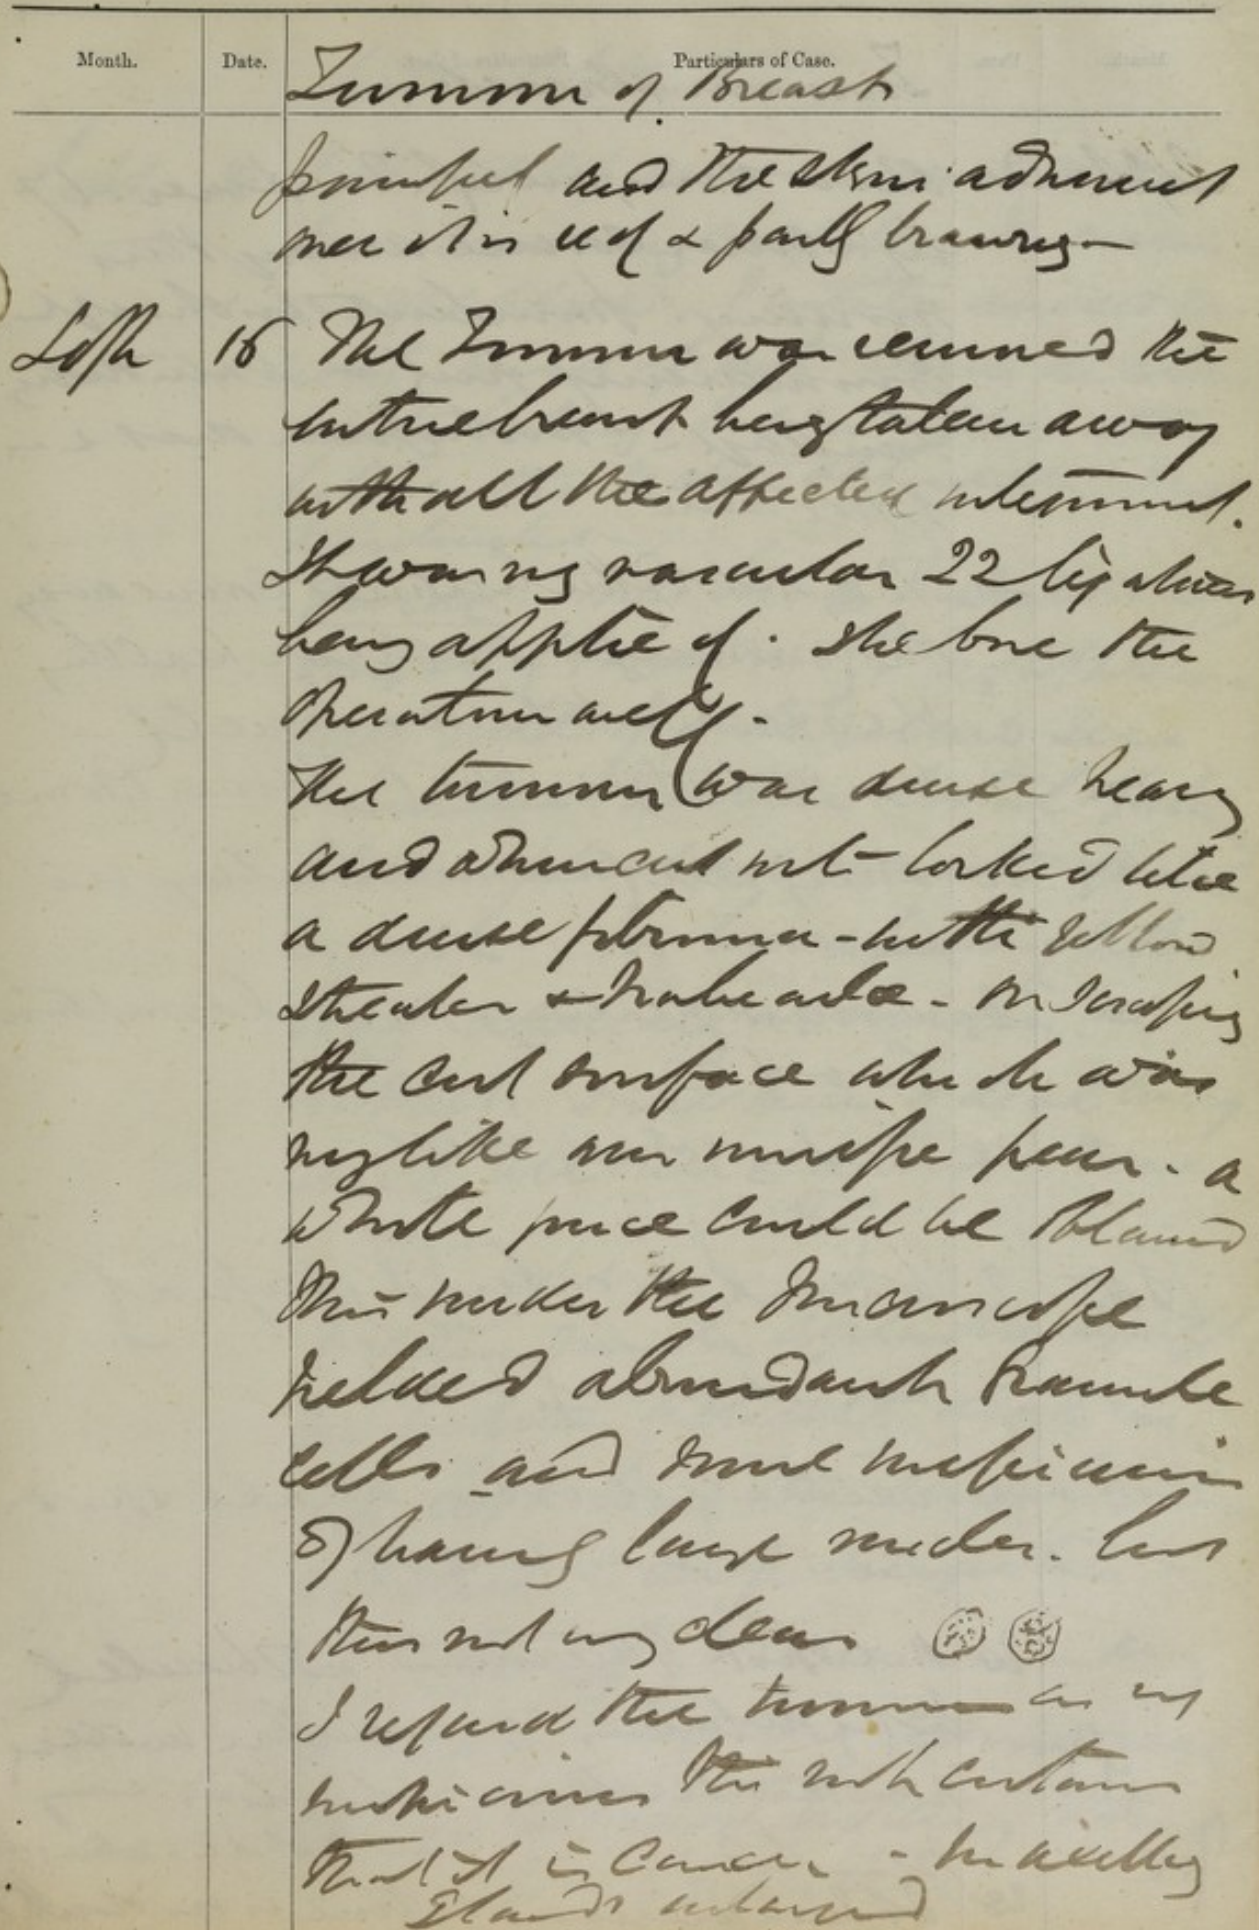 Month. Date. Particulars of Case.
Tumour of Breast
painful and the skin adherent
over it is red & partly
Sept 16 The Tumour was removed the
entire breast being taken away
with all the affected integument.
It was very vascular 22 ligatures
being applied. She bore the
operation well.
The tumour was dense heavy
and when cut into looked like
a dense fibroma - with yellow
streaks & trabeculae - on scraping
the cut surface which was
very like an unripe pear - a
white juice could be obtained
This under the Microscope
yielded abundant granule
cells and some suspicious
of having large nuclei. but
this not very clear
I regard the tumour as very
suspicious tho' not certain
that it is Cancer - no axillary
glands enlarged